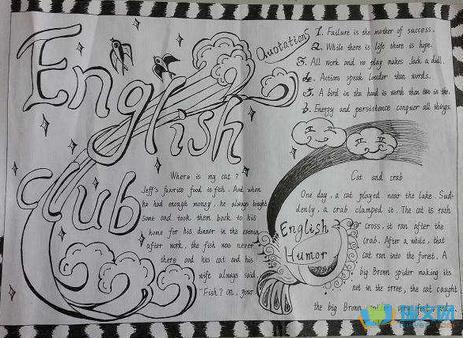 English
club
Quotations
1. Failure is the mother of success.
2. While there is life there is hope.
3. All work and no play makes Jack a dull.
4. Actions speak louder than words.
5. A bird in the hand is worth than two in the.
6. Energy and persistence conquer all things.
Where is my cat?
Jeff's favorite food is fish. And when
he had enough money, he always bought
some and took them back to his
home for his dinner in the evening
after work, the fish was never
there and his cat and his
wife always said,
"Fish?
English
Humor
Cat and crab
One day, a cat played near the lake. Sud-
denly, a crab clamped it. The cat is
cross, it ran after the
crab. After a while, that
cat ran into the forest. A
big Brown spider making its
net in the tree, the cat caught
the big Brown